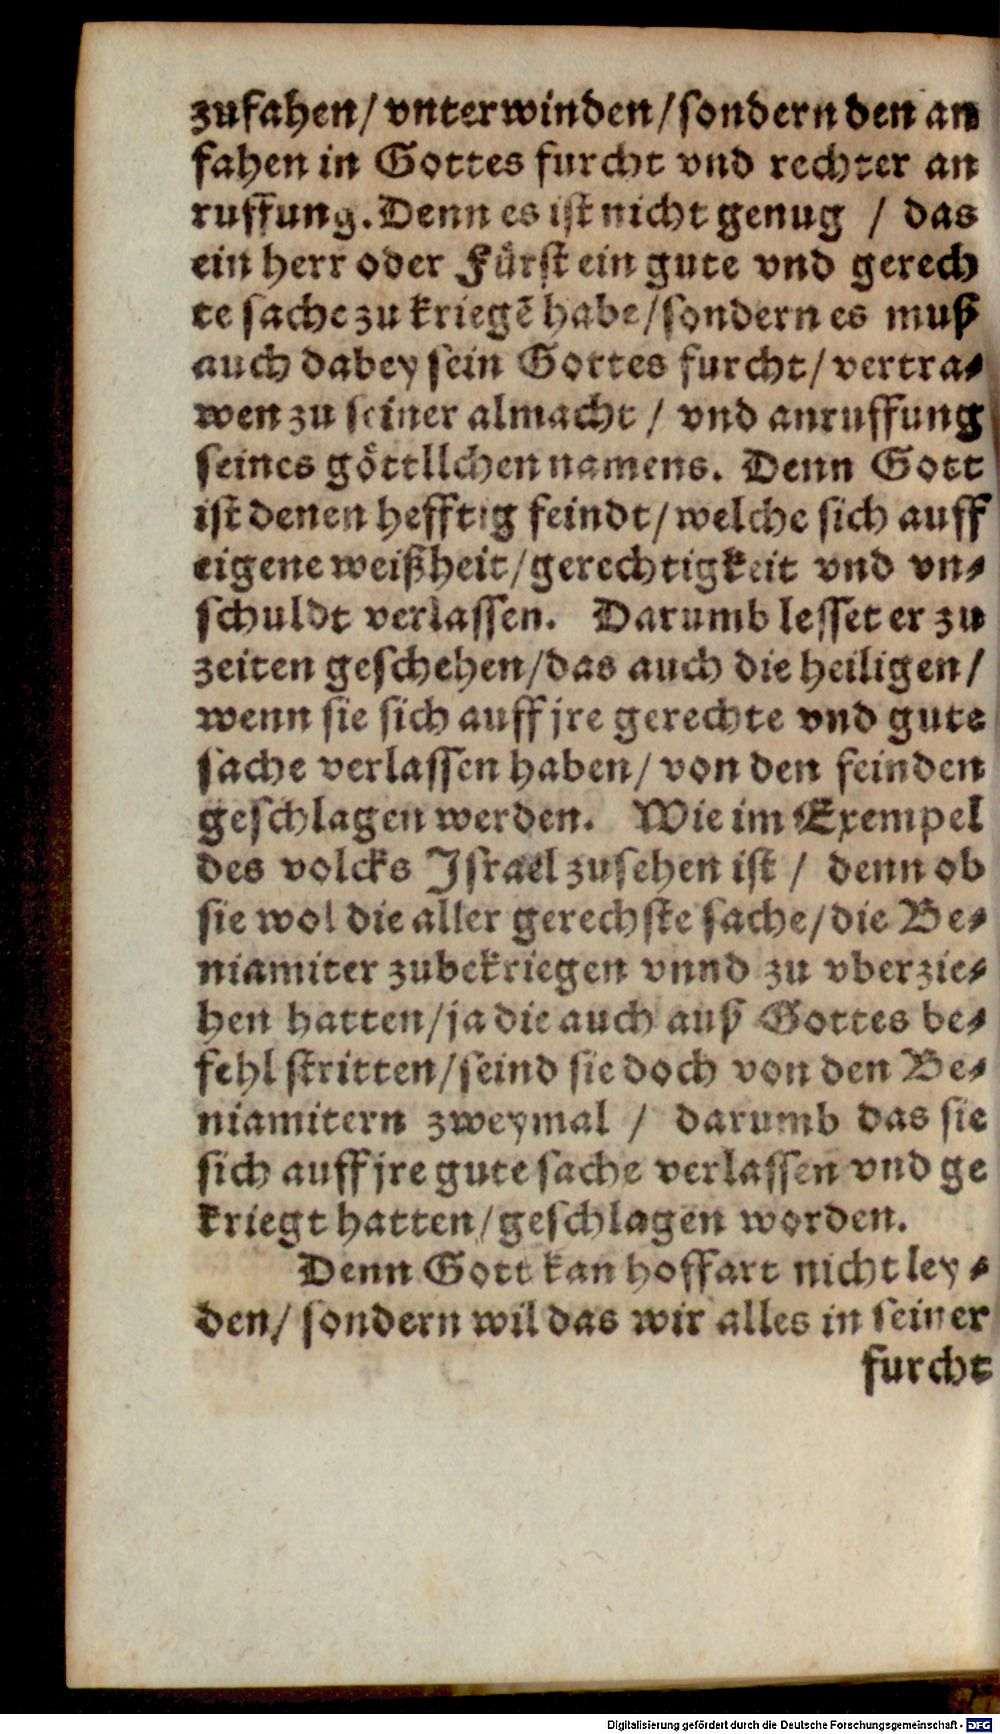 zufahen/ vnterwinden/ sondern den an
fahen in Gottes furcht vnd rechter an
ruffung. Denn es ist nicht genug / das
ein herr oder Fürst ein gute vnd gerech
te sache zu kriegẽ habe/ sondern es muß
auch dabey sein Gottes furcht/ vertra⸗
wen zu seiner almacht / vnd anruffung
seines göttllchen namens. Denn Gott
ist denen hefftig feindt/ welche sich auff
eigene weißheit/ gerechtigkeit vnd vn⸗
schuldt verlassen. Darumb lesset er zu
zeiten geschehen/ das auch die heiligen/
wenn sie sich auff jre gerechte vnd gute
sache verlassen haben/ von den feinden
geschlagen werden. Wie im Exempel
des volcks Israel zusehen ist / denn ob
sie wol die aller gerechste sache/ die Be⸗
niamiter zubekriegen vnnd zu vberzie⸗
hen hatten/ ja die auch auß Gottes be⸗
fehl stritten/ seind sie doch von den Be⸗
niamitern zweymal / darumb das sie
sich auff jre gute sache verlassen vnd ge
kriegt hatten/ geschlagen worden.
Denn Gott kan hoffart nicht ley⸗
den/ sondern wil das wir alles in seiner
furcht
Digitalisierung gefördert durch die Deutsche Forschungsgemeinschaft - DFG